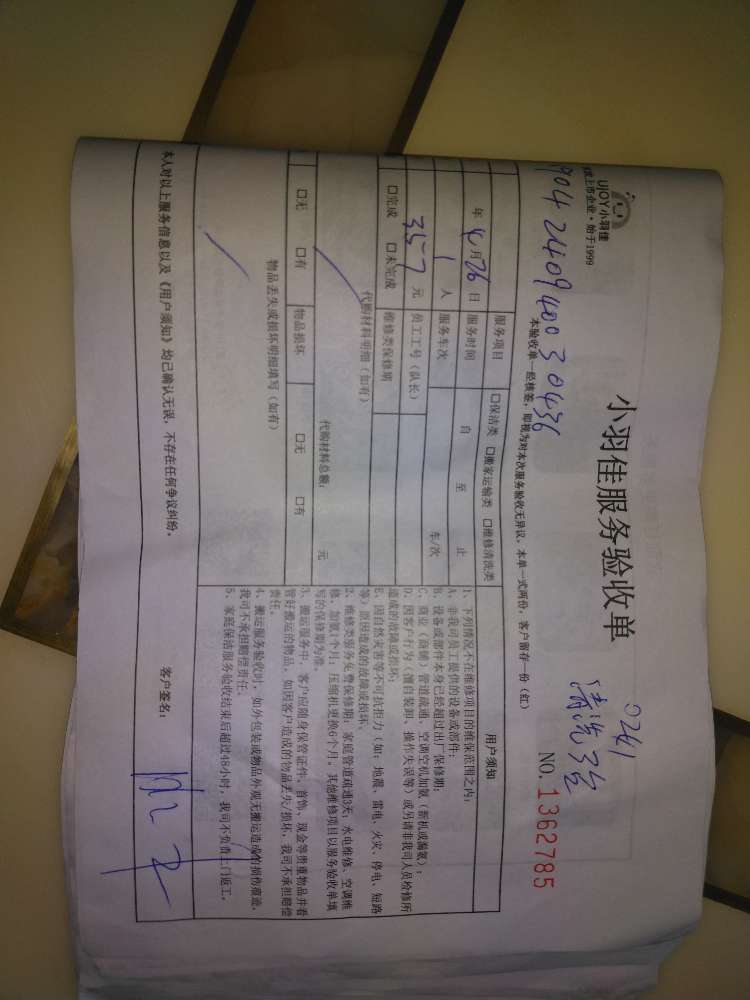 UJOY小羽佳
上市企业·始于1999
小羽佳服务验收单
0241
清洗3台
NO.1362785
904240940030436
本验收单一经核签，即视为对本次服务验收无异议，本单一式两份，客户留存一份(红)
服务项目 □保洁类 □搬家运输类 □维修清洗类
年4月26日 服务时间 自 至 止
1人 服务车次 车/次
357元 员工工号（队长）
□完成 □未完成 维修类保修期
代购材料明细（如有）
代购材料总额： 元
□无 □有 物品损坏 □无 □有
物品丢失或损坏明细填写（如有）
用户须知
1、下列情况不在维修项目的维保范围之内：
A、非我司员工提供的设备或部件；
B、设备或部件本身已经超过出厂保修期；
C、商业（商铺）管道疏通、空调空机加氨（新机或漏氨）；
D、因客户行为（擅自装卸、操作失误等）或另请非我司人员检修所
造成的故障或损坏；
E、因自然灾害等不可抗拒力（如：地震、雷电、火灾、停电、短路
等）原因造成的故障或损坏。
2、维修类服务免费保修期：家庭管道疏通3天，水电维修、空调维
修、加氨1个月，压缩机更换6个月，其他维修项目以服务验收单填
写的保修期为准。
3、搬运服务中，客户应随身保管证件、首饰、现金等贵重物品并看
管好搬运的物品，如因客户造成的物品丢失/损坏，我司不承担赔偿
责任。
4、搬运服务验收时，如外包装或物品外观无搬运造成的损伤痕迹，
我司不承担赔偿责任。
5、家庭保洁服务验收结束后超过48小时，我司不负责上门返工。
本人对以上服务信息以及《用户须知》均已确认无误，不存在任何争议纠纷。
客户签名：